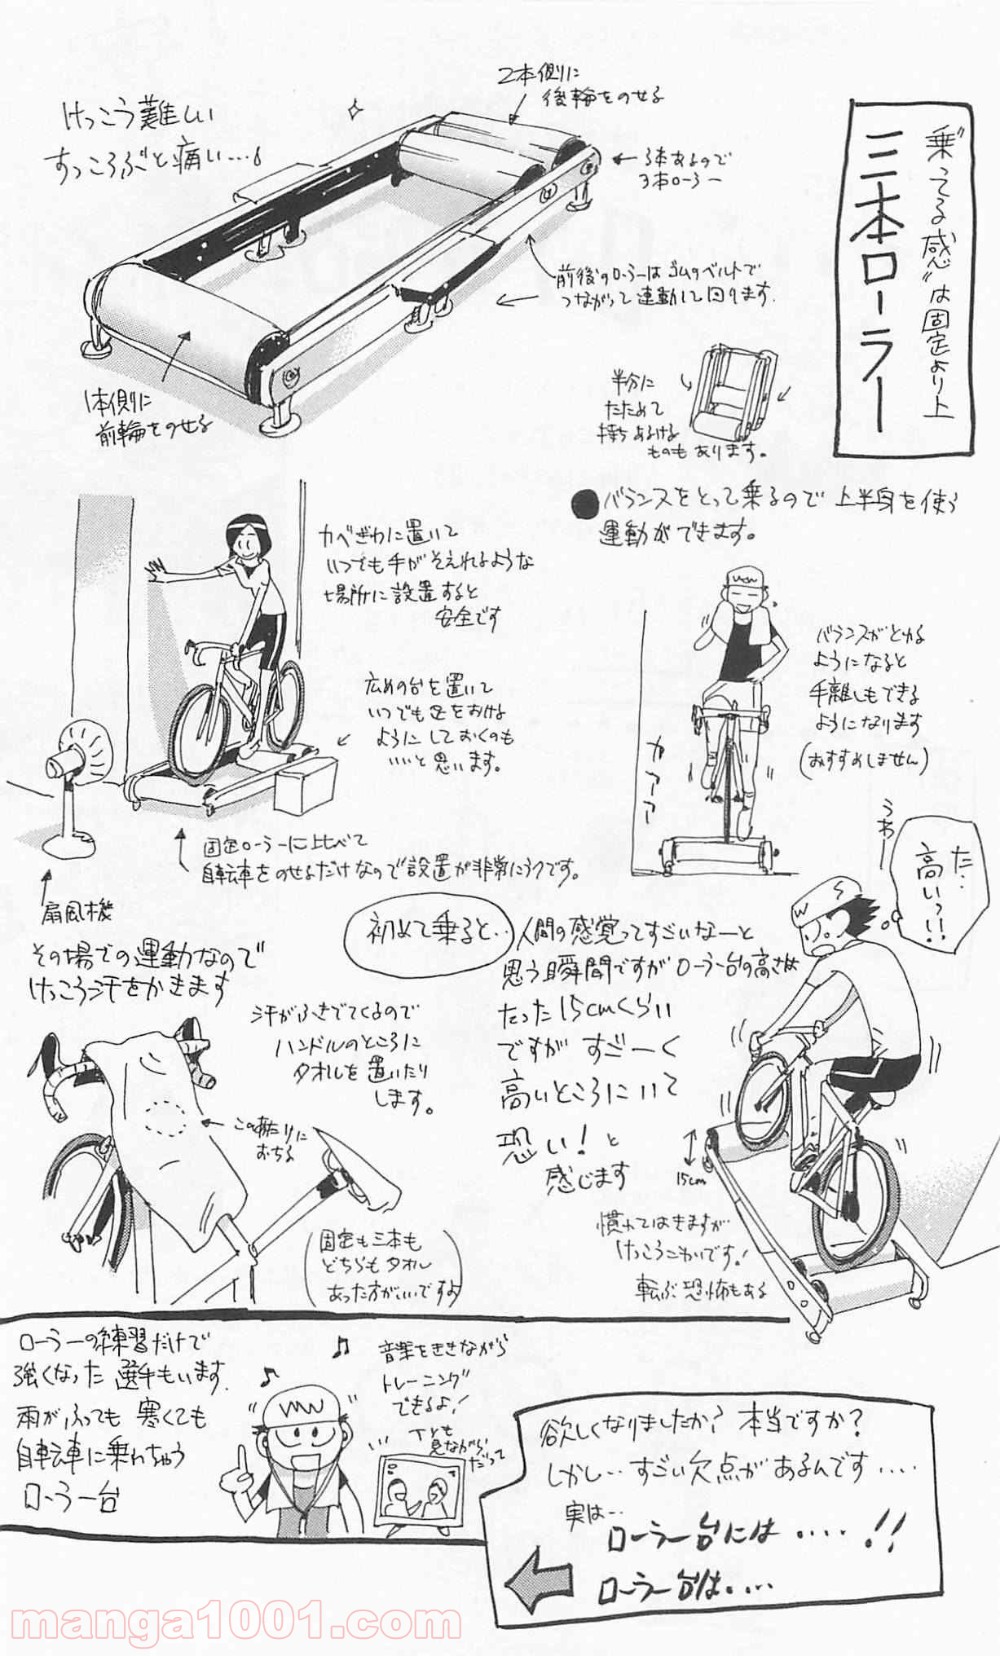 "乗ってる感"は固定より上
三本ローラー
けっこう難しい
すっころぶと痛い…。
2本側に
後輪をのせる
3本あるので
3本ローラー
前後のローラーはゴムのベルトで
つながって連動して回ります.
1本側に
前輪をのせる
半分に
たためて
持ちあるける
ものもあります。
●バランスをとって乗るので上半身を使う
運動ができます。
カベぎわに置いて
いつでも手がそえれるような
場所に設置すると
安全です
広めの台を置いて
いつでも足をおける
ようにしておくのも
いいと思います。
バランスがとれる
ようになると
手離しもできる
ようになります
(おすすめしません)
カアアアー
固定ローラーに比べて
自転車をのせるだけなので設置が非常にラクです。
扇風機
その場での運動なので
けっこう汗をかきます
汗がふきでてくるので
ハンドルのところに
タオルを置いたり
します。
この辺りに
おちる
(固定も三本も
どちらもタオル
あった方がいいですよ)
初めて乗ると…
人間の感覚ってすごいなーと
思う瞬間ですがローラー台の高さは
たった15cmくらい
ですが すごーく
高いところにいて
恐い!と
感じます
うわー
た…
高いっ!!
W S
15cm
慣れてはきますが
けっこうこわいです!
転ぶ恐怖もある
ローラーの練習だけで
強くなった選手もいます.
雨がふっても寒くても
自転車に乗れちゃう
ローラー台
音楽をききながら
トレーニング
できるよ!
TVも
見ながら
だって
欲しくなりましたか? 本当ですか?
しかし…すごい欠点があるんです‥‥
実は…
ローラー台には‥‥!!
ローラー台は‥‥
manga1001.com